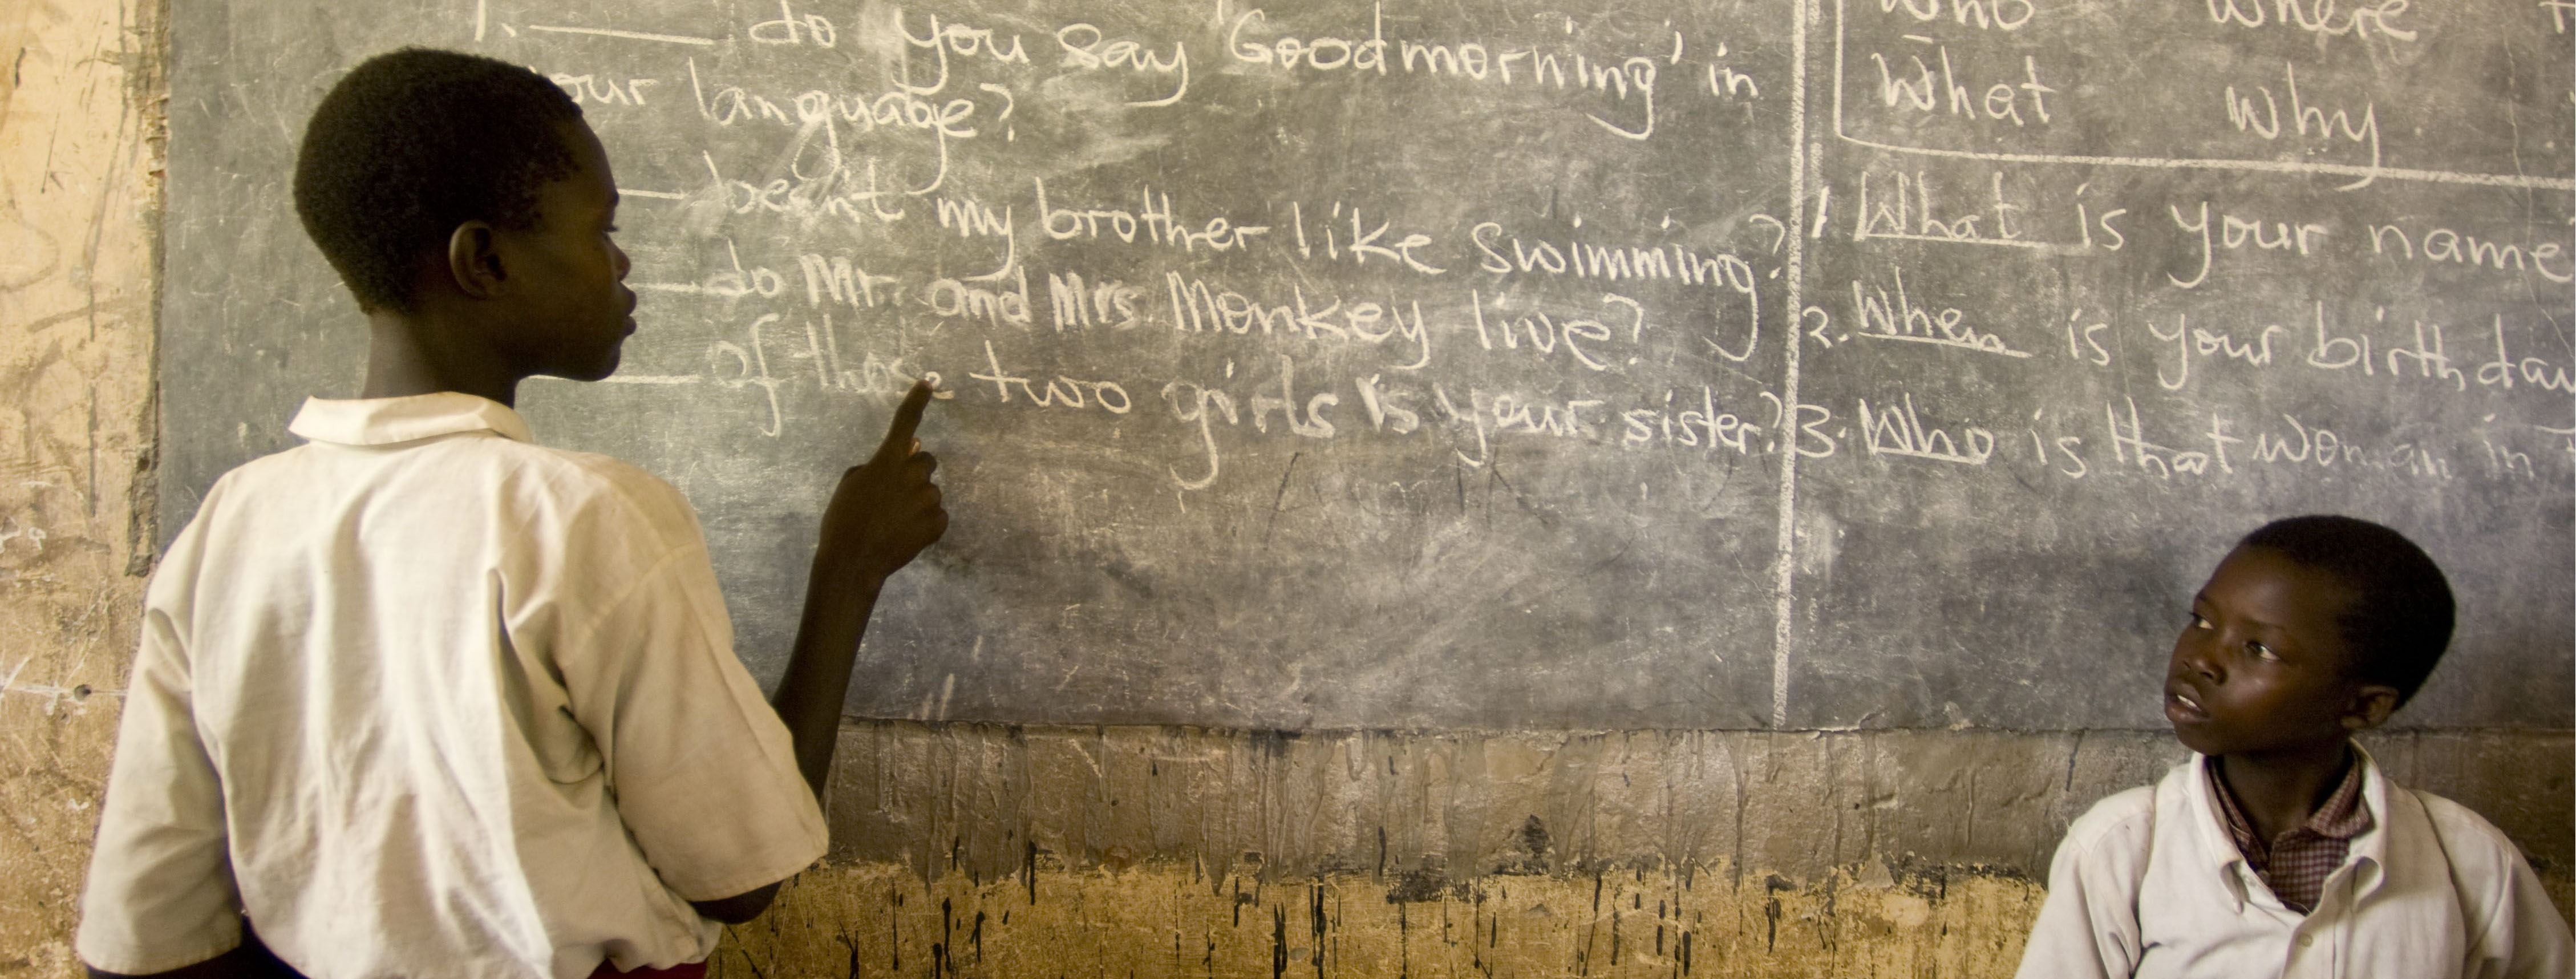 1. ______ do you say 'Goodmorning' in
our language?
______ my brother like swimming?
______ do Mr. and Mrs. Monkey live?
______ of those two girls is your sister?
who where
What why
1 What is your name
2. When is your birthday
3. Who is that woman in